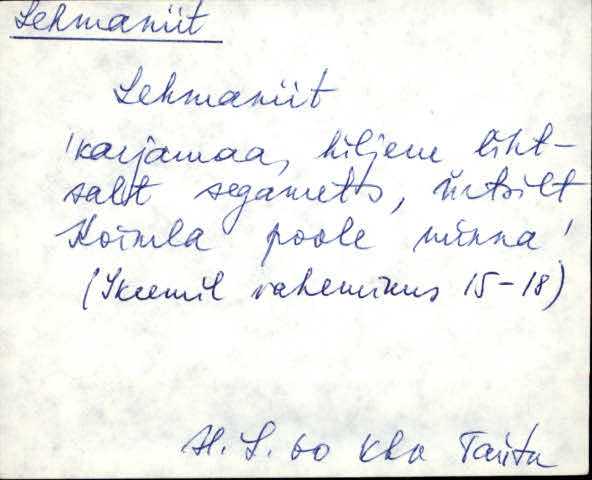 Lehmaniit
Lehmaniit
'karjamaa, hiljem liht-
salt segamets,
Koimla poole minna'
(Skeemil vahemikus 15-18)
H. S. 60 Khk